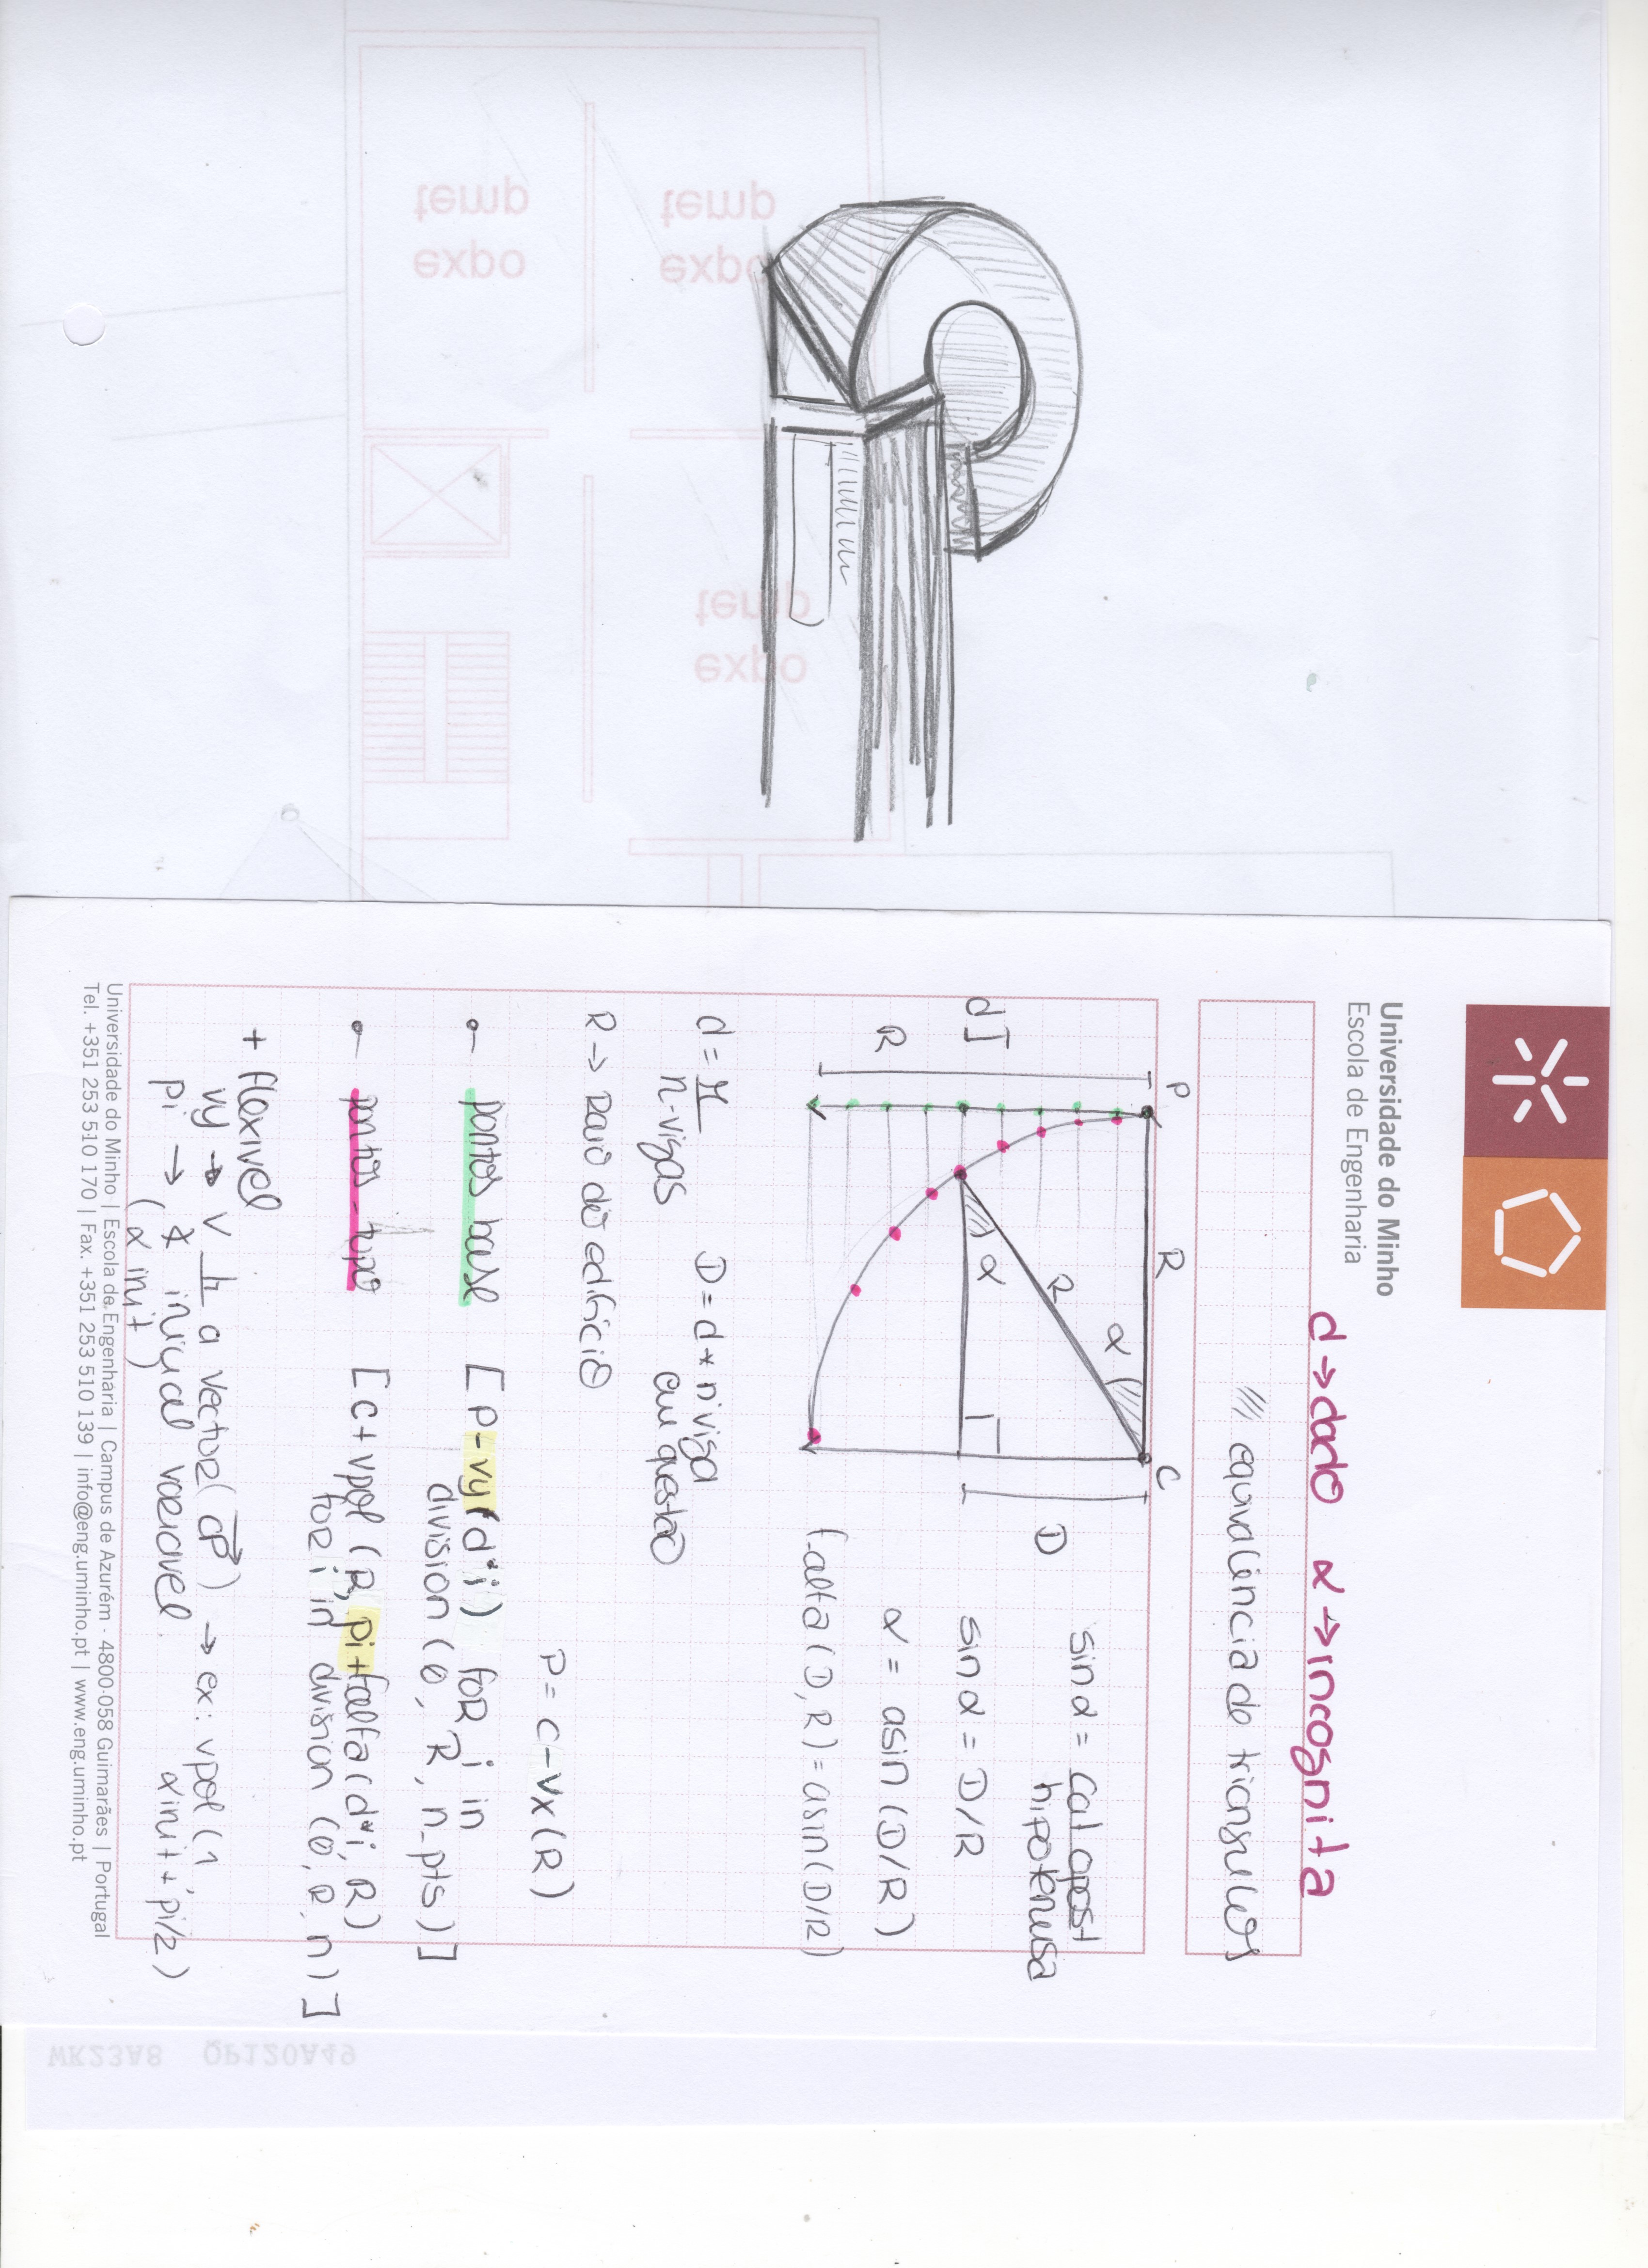 temp
expo
temp
expo
temp
expo
Universidade do Minho
Escola de Engenharia
d → dado α → incognita
equivalência de triangulos
P R C
α
R
D
d
α
R
sin α = cat opost
hipotenusa
sin α = D/R
α = asin (D/R)
f_alfa (D, R) = asin (D/R)
d = r
n-vigas
D = d * nº viga
em questão
R → Raio do edificio
P = C - Vx (R)
pontos base [P - vy (d*i) for i in
division (0, R, n_pts)]
pontos_topo [C + vpol (R, pi + falfa (d*i, R)
for i in division (0, R, n)]
+ flexivel
vy → V ⊥ a vector (CP) → ex: vpol (1,
αinit + pi/2)
pi → ∡ inicial variavel.
(α init)
Universidade do Minho | Escola de Engenharia | Campus de Azurém - 4800-058 Guimarães | Portugal
Tel. +351 253 510 170 | Fax. +351 253 510 139 | info@eng.uminho.pt | www.eng.uminho.pt
WK23A8 QP120A49